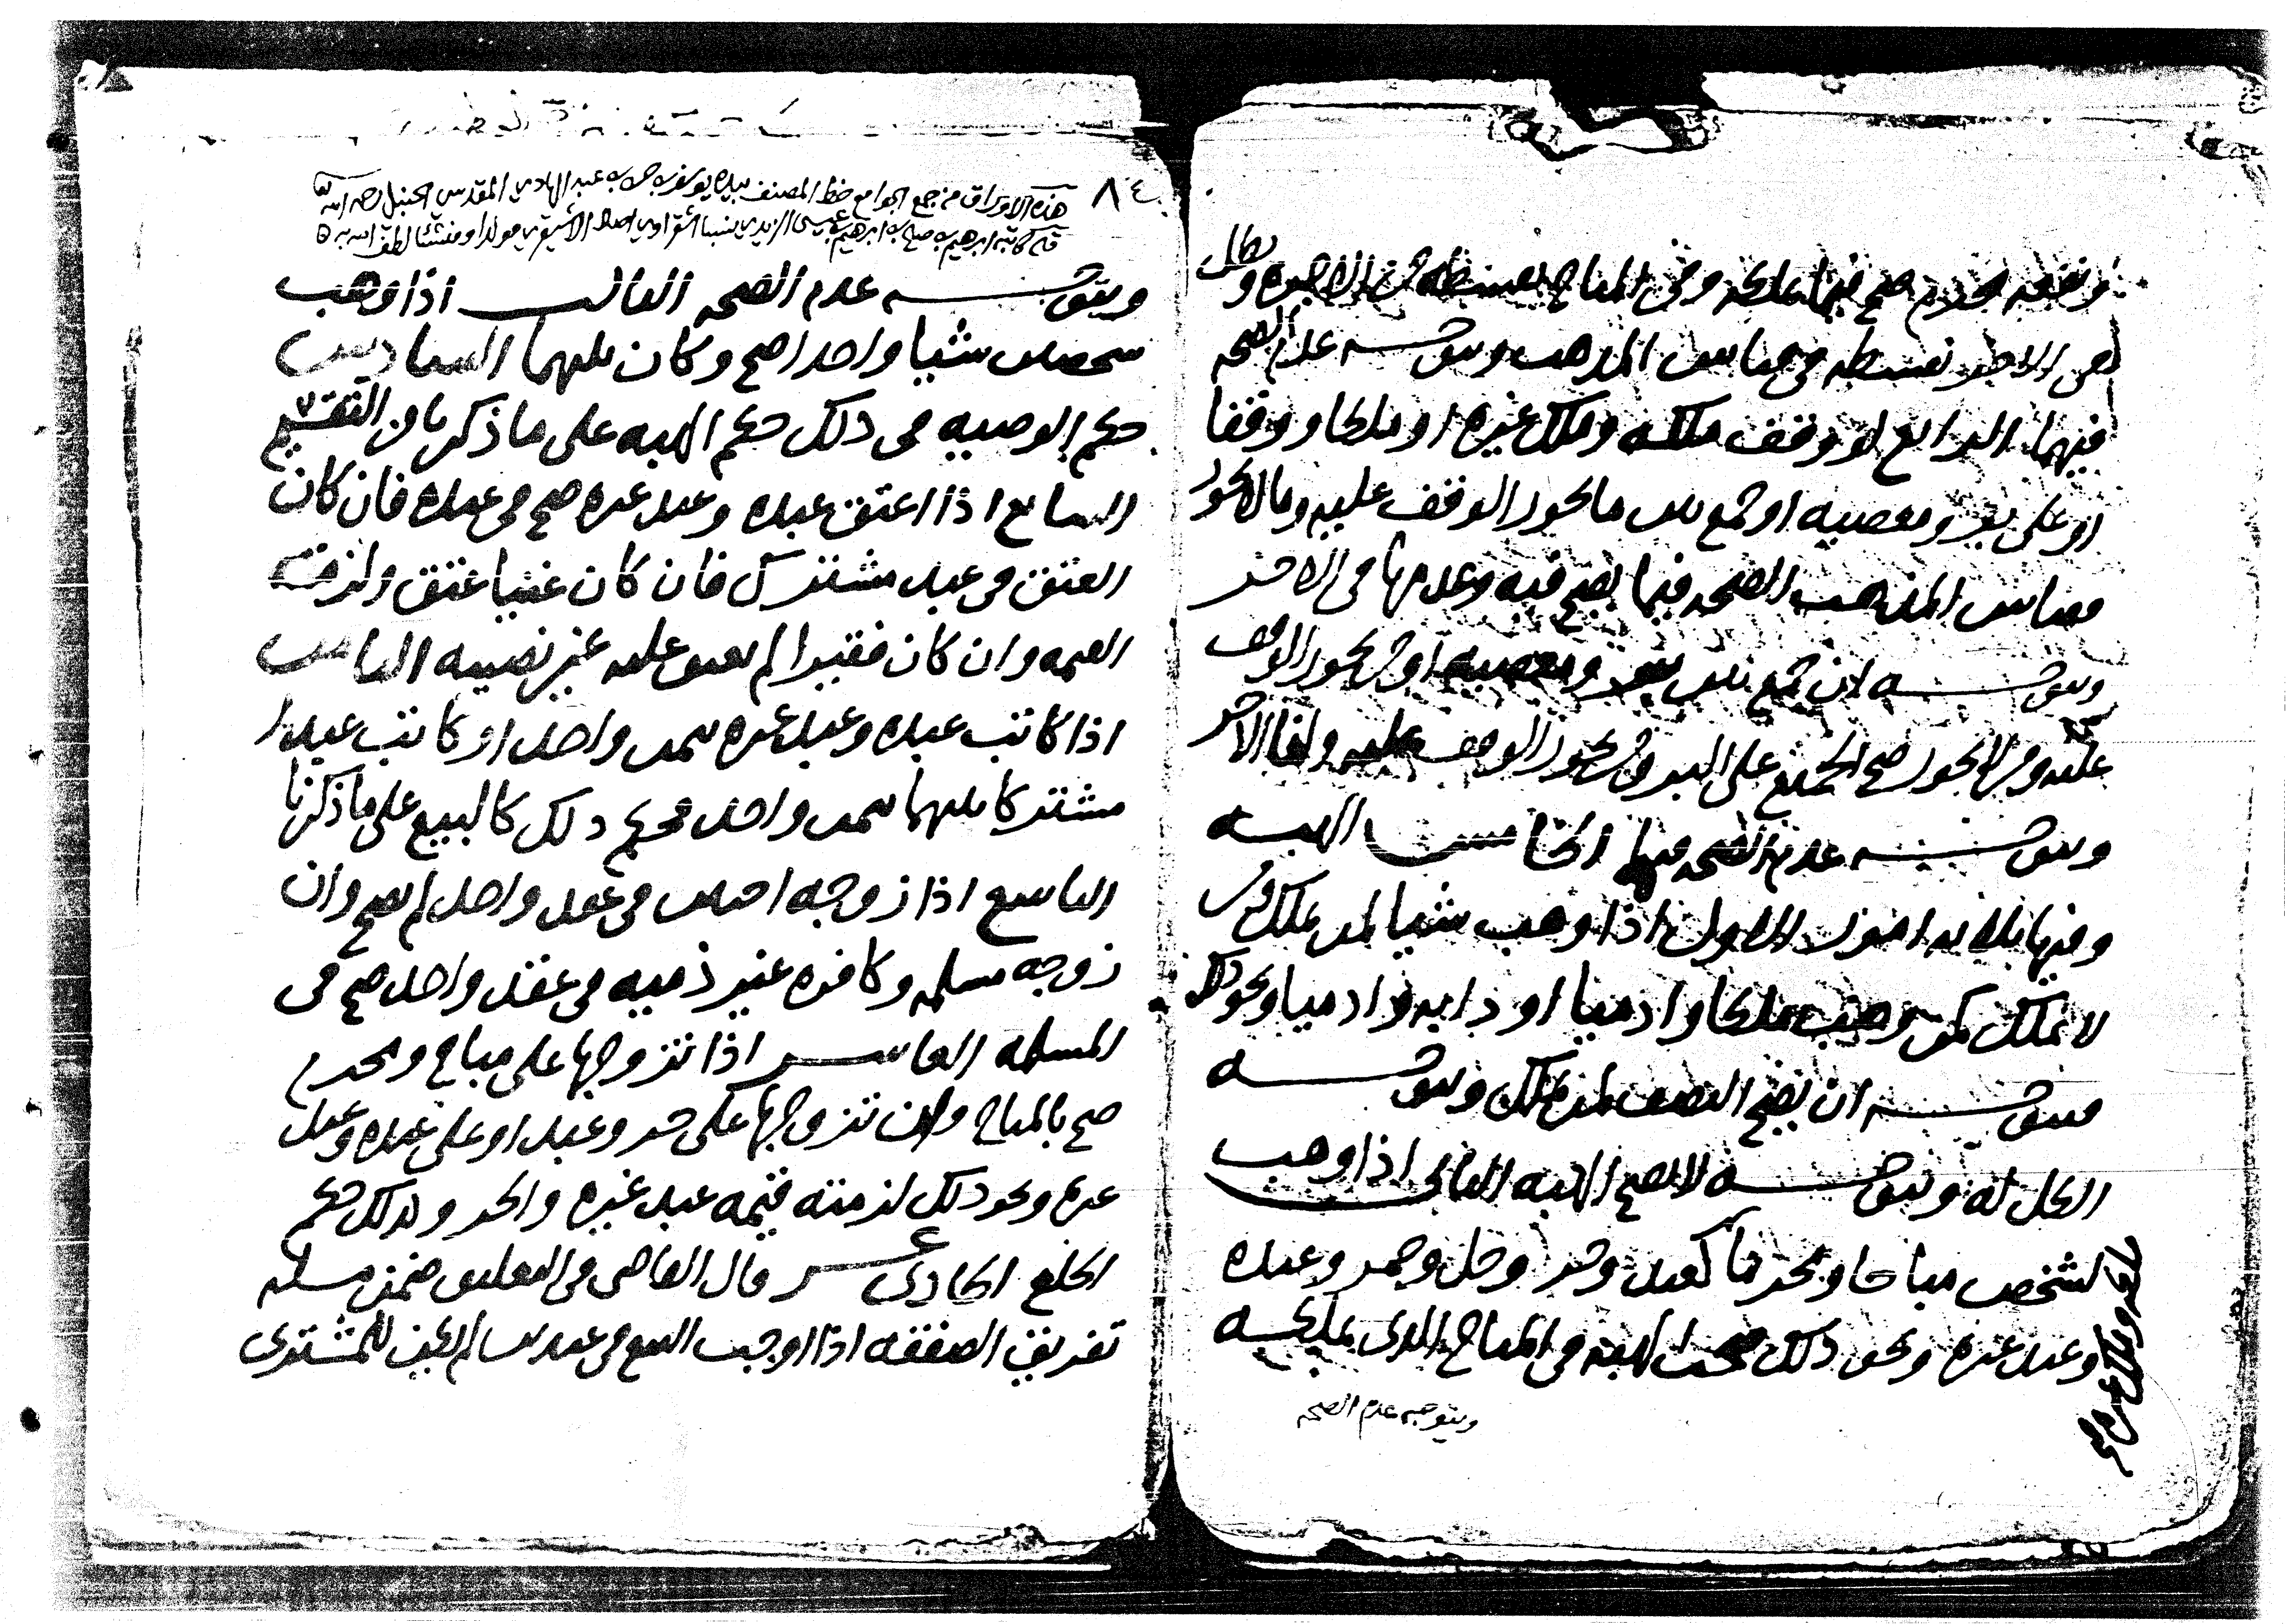 ومنفعه محرم صح فيما يملكه وفي المباح بقسطه من الاجره وبطل
في الاخر بقسطه في قياس المذهب ويتوجه عدم الصحه
فيهما الرابع لو وقف ملكه وملك غيره او ملكا ووقفا
او على بر ومعصيه او جمع بين ما يجوز الوقف عليه وما لا يجوز
فقياس المذهب الصحه فيما يصح فيه وعدمها في الاخر
ويتوجه ان جمع بين بر ومعصيه او من يجوز الوقف
عليه ومن لا يجوز صح الجميع على البر ومن يجوز الوقف عليه ولغا الاخر
ويتوجه عدم الصحه فيهما الخامس الهبه
وفيها ثلاثه امور الاول اذا وهب شيا لمن يملك ومن
لا يملك كمن وهب ملكا وادميا او دابه وادميا ونحو ذلك
فيتوجه ان يصح النصف لمن يملك ويتوجه
الكل له ويتوجه لا تصح الهبه الثاني اذا وهب
لشخص مباحا ومحرما كعبد وحر وخل وخمر وعبده
وعبد غيره ونحو ذلك صحت الهبه في المباح الذي يملكه
ويتوجه عدم الصحه
٨٤
هذه الاوراق من جمع الجوامع خط المصنف بيده يوسف بن حسن بن عبد الهادي المقدسي الحنبلي رحمه الله
قاله كاتبه ابرهيم بن صالح بن ابرهيم بن عيسى الزيدي نسبا الشقراوي اصلا الاشيقري مولدا ومنشئا لطف الله به
ويتوجه عدم الصحه الثالث اذا وهب
شخصان شيا واحدا صح وكان بينهما السادس
حكم الوصيه في ذلك حكم الهبه على ما ذكر بان التقسيم
السابع اذا اعتق عبده وعبد غيره صح في عبده فان كان
العتق في عبد مشترك فان كان غنيا عتق ولزمته
القيمه وان كان فقيرا لم يعتق عليه غير نصيبه الثامن
اذا كاتب عبده وعبد غيره بثمن واحد او كاتب عبدا
مشتركا بينهما بثمن واحد فحكم ذلك كالبيع على ما ذكرنا
التاسع اذا زوجه اختين في عقد واحد لم يصح وان
زوجه مسلمه وكافره غير ذميه في عقد واحد صح في
المسلمه العاشر اذا تزوجها على مباح ومحرم
صح بالمباح وان تزوجها على حر وعبد او على عبده وعبد
غيره ونحو ذلك لزمته قيمه عبد غيره والحر وكذلك حكم
الخلع الحادي عشر قال القاضي في التعليق ضمن مسله
تفريق الصفقه اذا اوجب البيع في عبدين لم يكن للمشتري